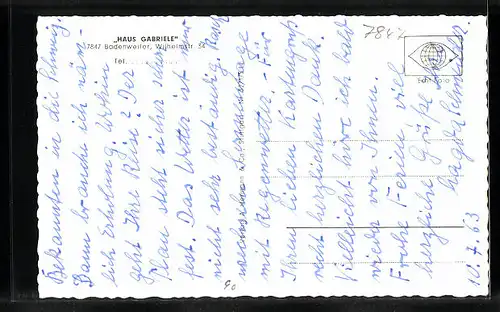 „HAUS GABRIELE"
7847 Badenweiler, Wilhelmstr. 34
Tel.
7847
Bekannten in die Schweiz.
Dann brauche ich näm-
lich Erholung. Wohin
geht Ihre Reise? Der
Plan steht sicher schon
fest. Das Wetter ist
nicht sehr beständig. Nach
mit Regenwetter. - Für
Ihren lieben Kartengruß
recht herzlichen Dank.
Vielleicht höre ich bald
wieder von Ihnen.
Frohe Ferien viel
herzliche Grüße
10.7.63